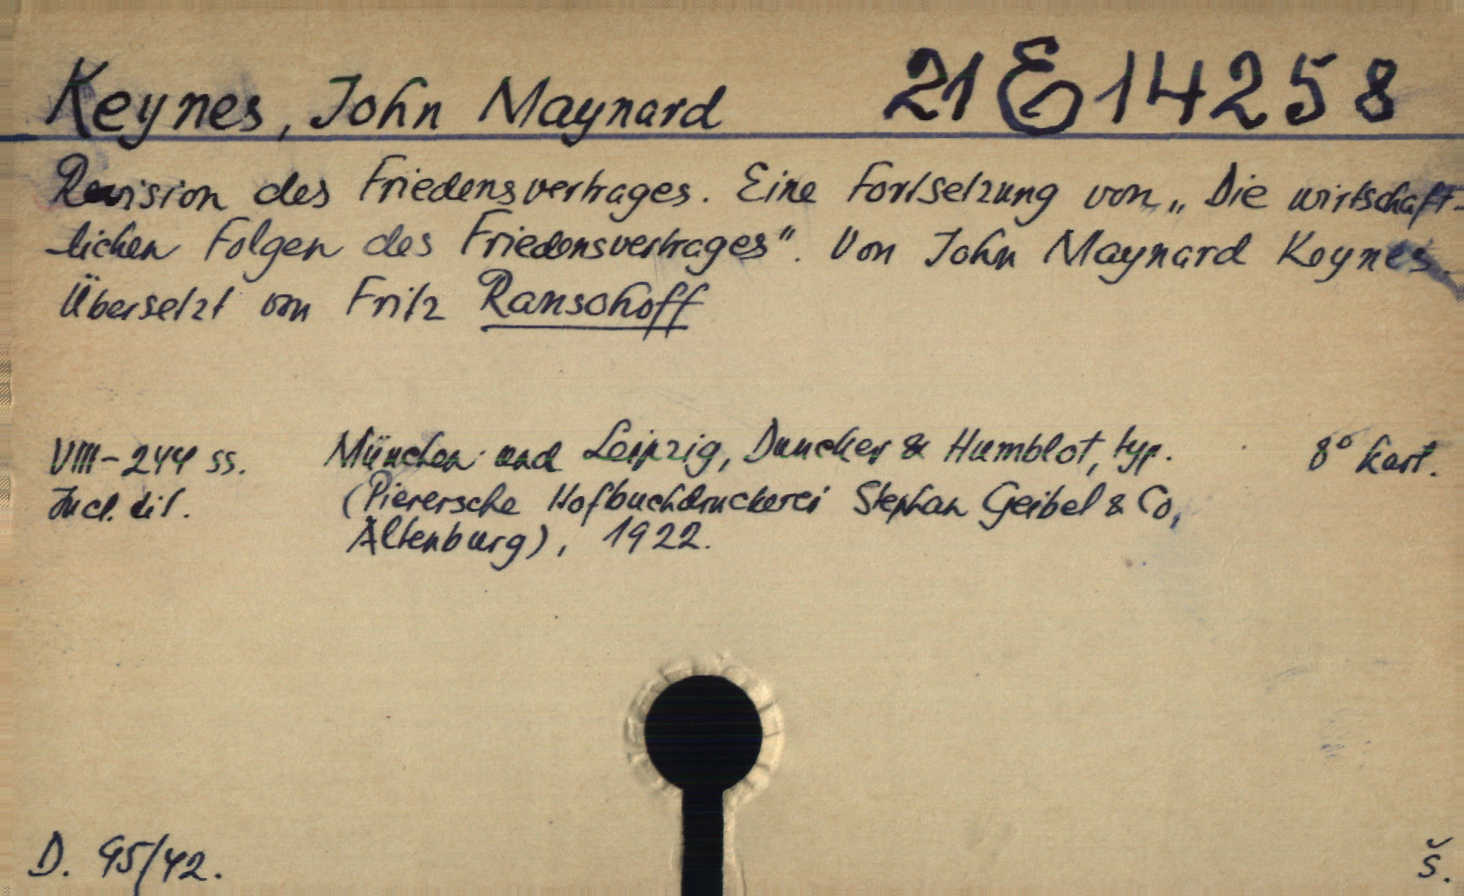 Keynes, John Maynard 21 E 14258
Revision des Friedensvertrages. Eine Fortsetzung von „Die wirtschaft-
lichen Folgen des Friedensvertrages". Von John Maynard Keynes.
Übersetzt von Fritz Ransohoff
VIII-244 ss. München und Leipzig, Duncker & Humblot, typ. 8° kart.
Incl. tit. (Pierersche Hofbuchdruckerei Stephan Geibel & Co,
Altenburg), 1922.
D. 95/42. Š.